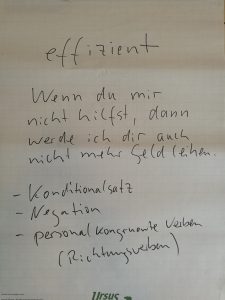 effizient
Wenn du mir
nicht hilfst, dann
werde ich dir auch
nicht mehr Geld leihen.
- Konditionalsatz
- Negation
- personalkongruente Verben
(Richtungsverben)
Ursus